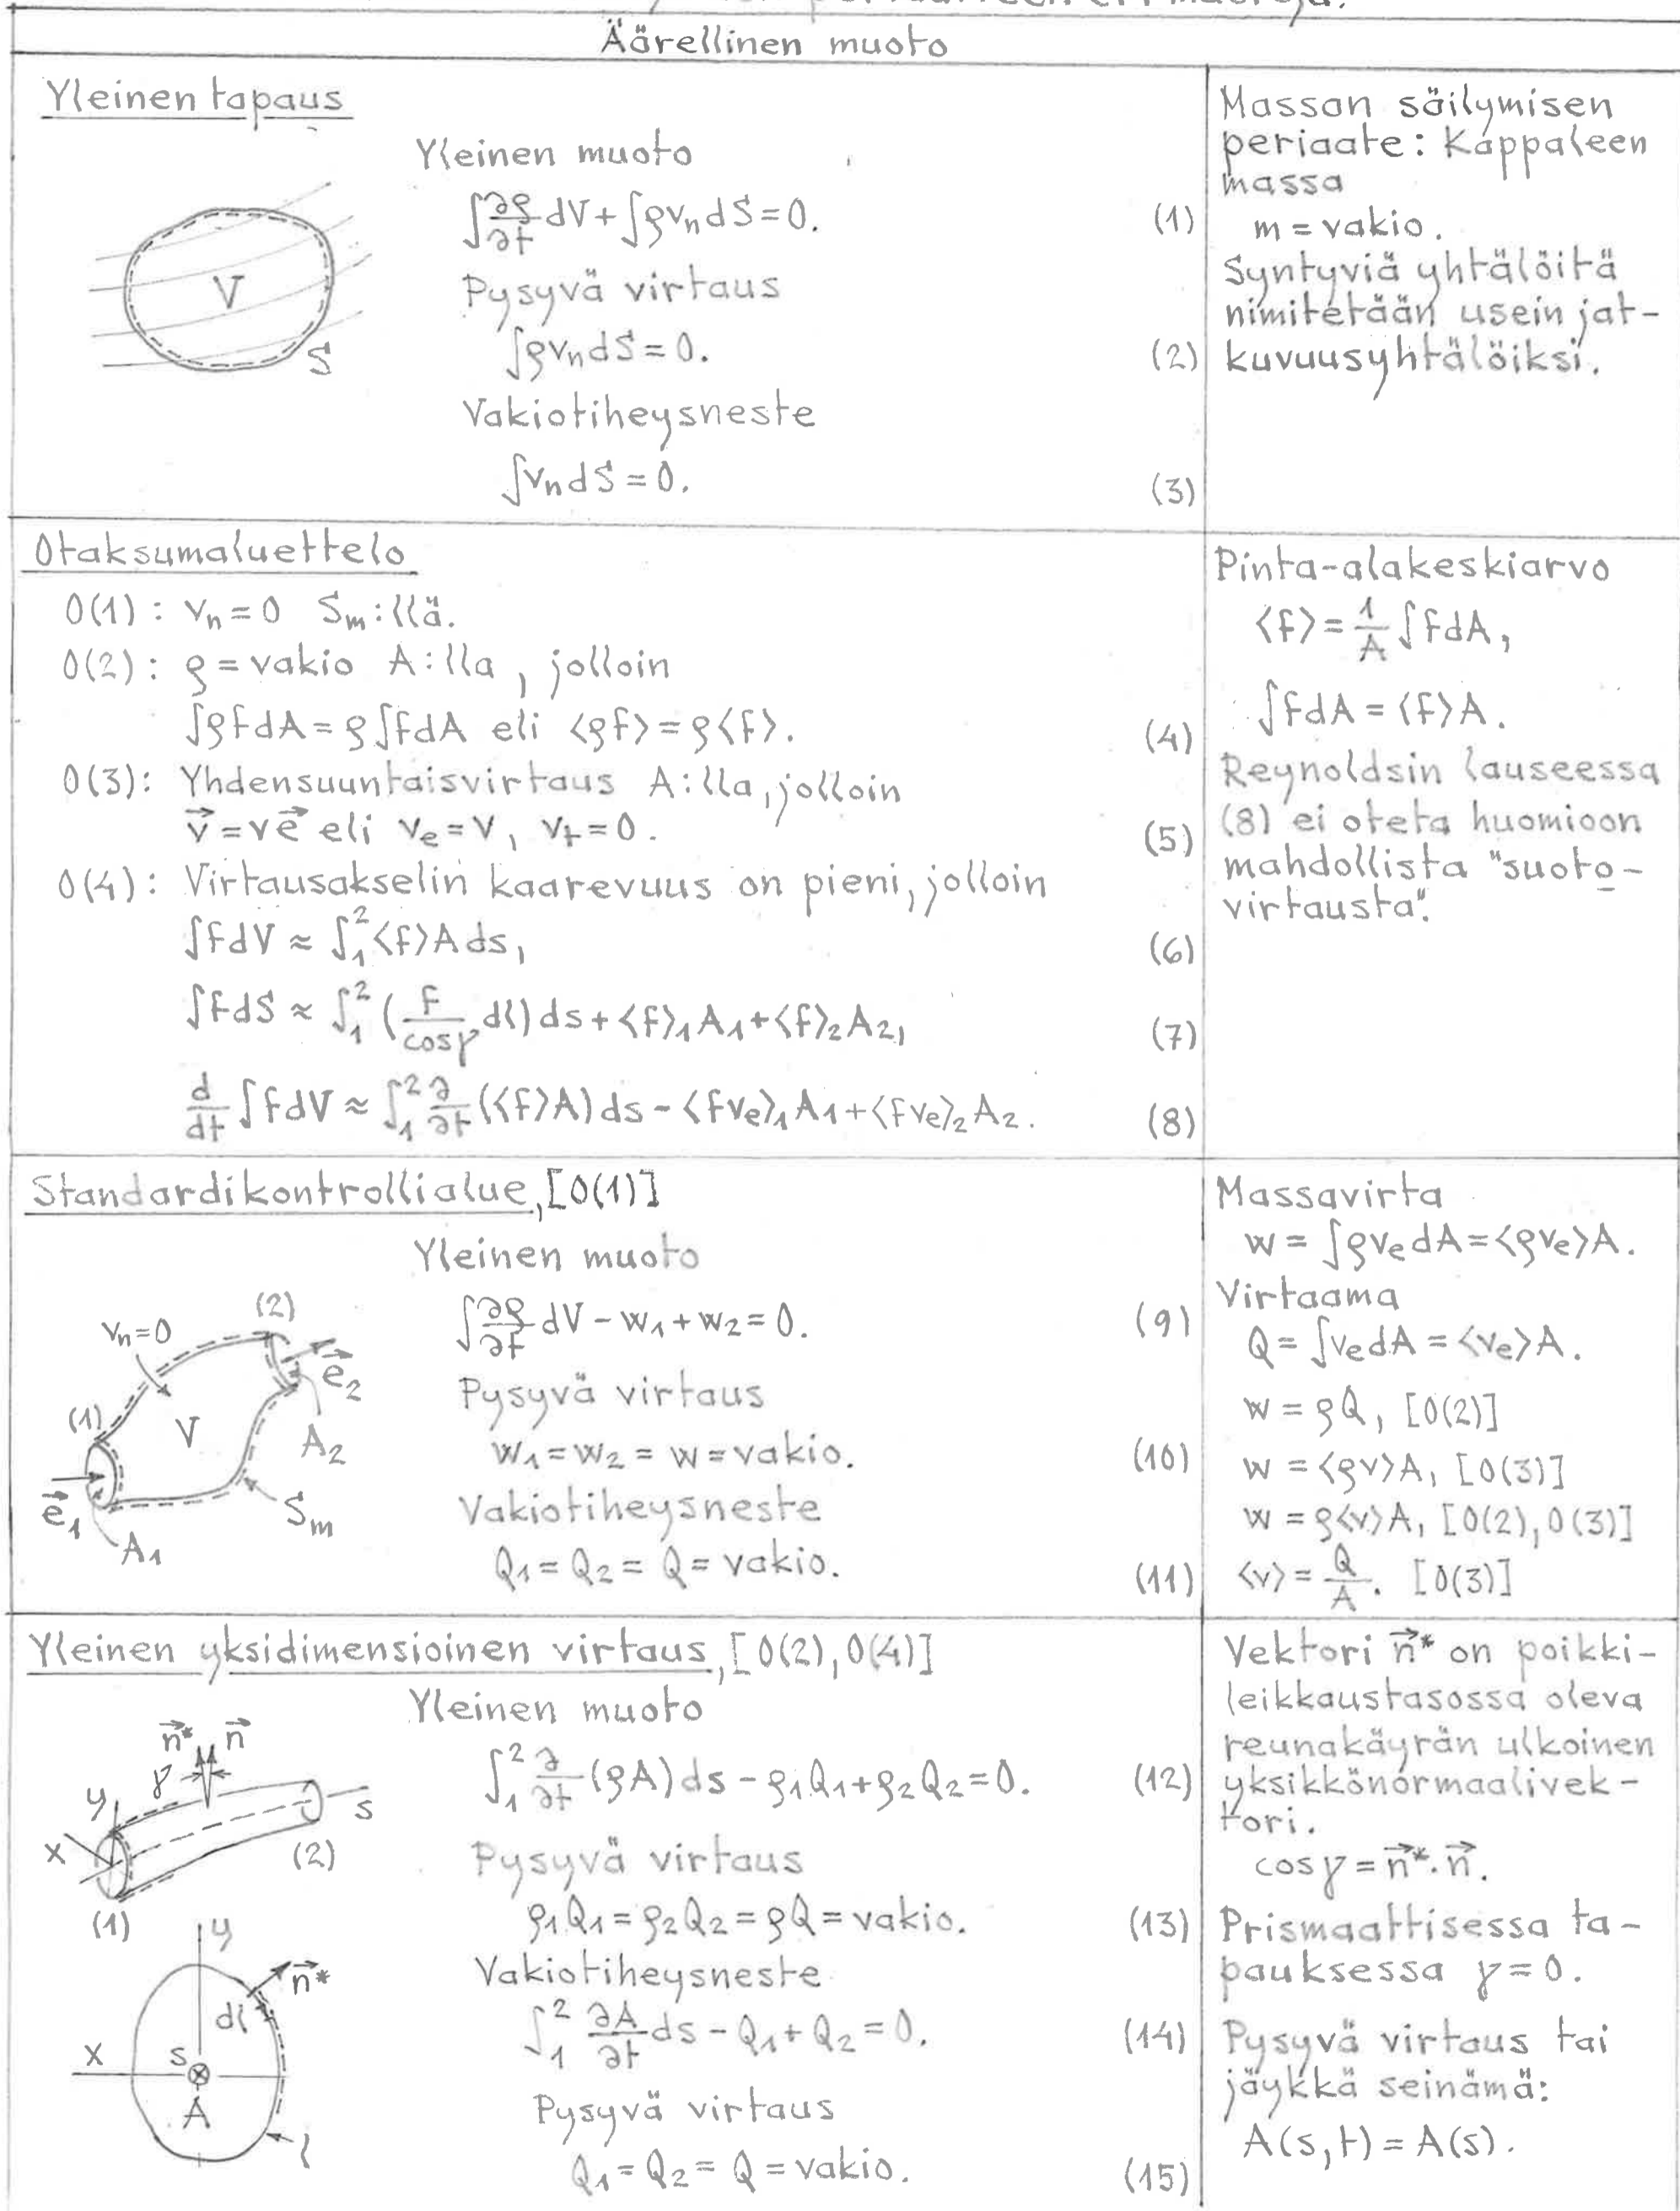 Äärellinen muoto
Yleinen tapaus
Yleinen muoto
∫∂ρ/∂t dV + ∫ρvₙdS = 0. (1)
Pysyvä virtaus
∫ρvₙdS = 0. (2)
Vakiotiheysneste
∫vₙdS = 0. (3)
V
S
Massan säilymisen
periaate: Kappaleen
massa
m = vakio.
Syntyviä yhtälöitä
nimitetään usein jat-
kuvuusyhtälöiksi.
Otaksumaluettelo
O(1): vₙ = 0 Sₘ:llä.
O(2): ρ = vakio A:lla, jolloin
∫ρfdA = ρ∫fdA eli ⟨ρf⟩ = ρ⟨f⟩. (4)
O(3): Yhdensuuntaisvirtaus A:lla, jolloin
v⃗ = ve⃗ eli vₑ = v, vₜ = 0. (5)
O(4): Virtausakselin kaarevuus on pieni, jolloin
∫fdV ≈ ∫₁²⟨f⟩A ds, (6)
∫fdS ≈ ∫₁²(f/cosγ dl)ds + ⟨f⟩₁A₁ + ⟨f⟩₂A₂, (7)
d/dt ∫fdV ≈ ∫₁² ∂/∂t(⟨f⟩A)ds - ⟨fvₑ⟩₁A₁ + ⟨fvₑ⟩₂A₂. (8)
Pinta-alakeskiarvo
⟨f⟩ = 1/A ∫fdA,
∫fdA = ⟨f⟩A.
Reynoldsin lauseessa
(8) ei oteta huomioon
mahdollista "suoto-
virtausta".
Standardikontrollialue, [O(1)]
Yleinen muoto
∫∂ρ/∂t dV - w₁ + w₂ = 0. (9)
Pysyvä virtaus
w₁ = w₂ = w = vakio. (10)
Vakiotiheysneste
Q₁ = Q₂ = Q = vakio. (11)
vₙ=0
(2)
e⃗₂
(1)
V
A₂
e⃗₁
Sₘ
A₁
Massavirta
w = ∫ρvₑdA = ⟨ρvₑ⟩A.
Virtaama
Q = ∫vₑdA = ⟨vₑ⟩A.
w = ρQ, [O(2)]
w = ⟨ρv⟩A, [O(3)]
w = ρ⟨v⟩A, [O(2), O(3)]
⟨v⟩ = Q/A. [O(3)]
Yleinen yksidimensioinen virtaus, [O(2), O(4)]
Yleinen muoto
∫₁² ∂/∂t(ρA)ds - ρ₁Q₁ + ρ₂Q₂ = 0. (12)
Pysyvä virtaus
ρ₁Q₁ = ρ₂Q₂ = ρQ = vakio. (13)
Vakiotiheysneste
∫₁² ∂A/∂t ds - Q₁ + Q₂ = 0. (14)
Pysyvä virtaus
Q₁ = Q₂ = Q = vakio. (15)
n⃗* n⃗
γ
y
s
x
(2)
(1)
y
n⃗*
dl
x
s
A
l
Vektori n⃗* on poikki-
leikkaustasossa oleva
reunakäyrän ulkoinen
yksikkönormaalivek-
tori.
cosγ = n⃗*·n⃗.
Prismaattisessa ta-
pauksessa γ = 0.
Pysyvä virtaus tai
jäykkä seinämä:
A(s,t) = A(s).